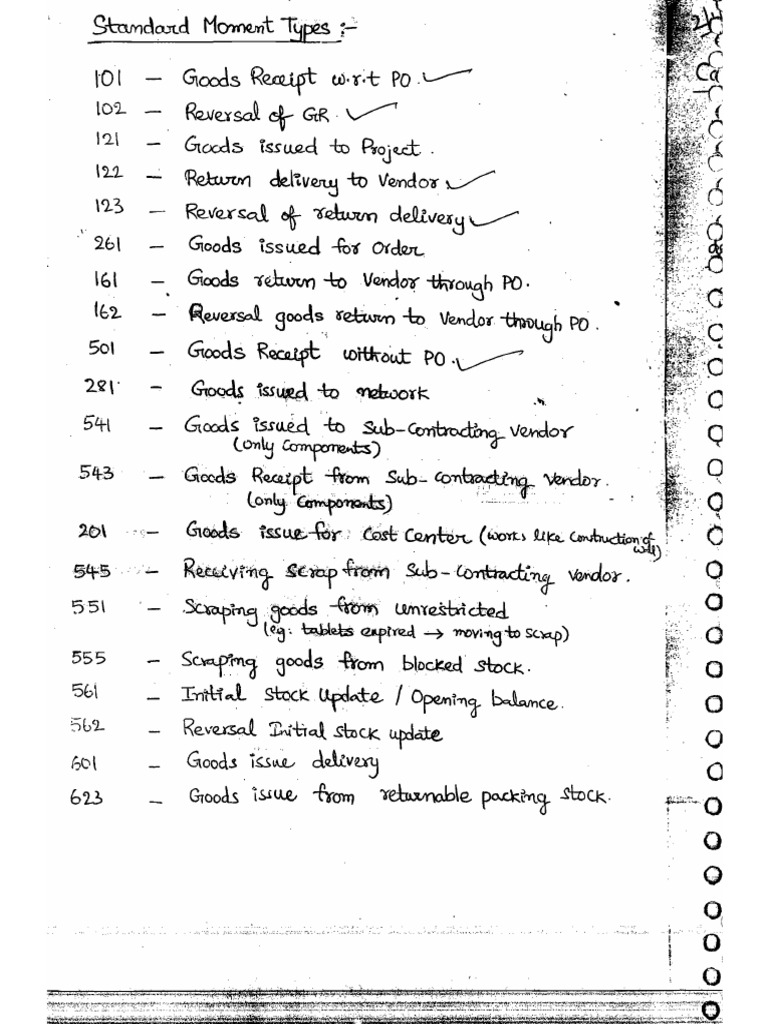 Standard Moment Types :-
101 - Goods Receipt w.r.t PO.
102 - Reversal of GR.
121 - Goods issued to Project.
122 - Return delivery to Vendor
123 - Reversal of return delivery
261 - Goods issued for order
161 - Goods return to Vendor through PO.
162 - Reversal goods return to Vendor through PO.
501 - Goods Receipt without PO.
281 - Goods issued to network
541 - Goods issued to Sub-Contracting vendor
(only components)
543 - Goods Receipt from Sub-contracting vendor.
(only components)
201 - Goods issue for Cost Center (works like Contruction of
wall)
545 - Receiving scrap from Sub-Contracting vendor.
551 - Scraping goods from unrestricted
(eg: tablets expired → moving to scrap)
555 - Scraping goods from blocked stock.
561 - Initial stock update / Opening balance.
562 - Reversal Initial stock update
601 - Goods issue delivery
623 - Goods issue from returnable packing stock.